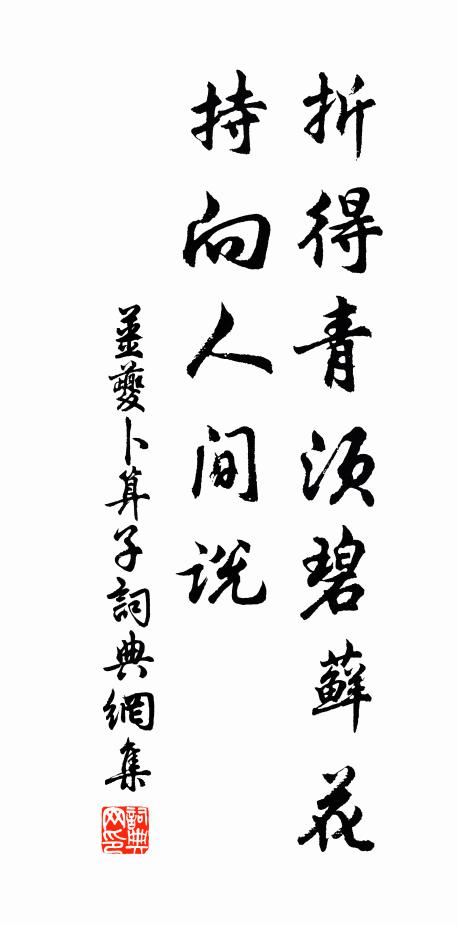 折得青须碧藓花
持向人间说
姜夔卜算子词典網集
詞典网印